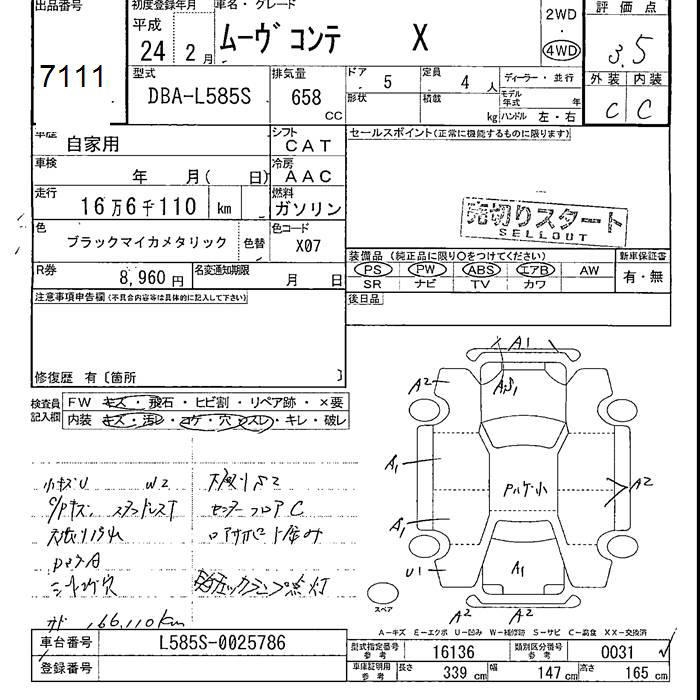 出品番号
7111
初度登録年月
平成
24 2月
車名・グレード
ムーヴ コンテ X
2WD
・
4WD
評価点
3.5
外装 内装
C C
型式
DBA-L585S
排気量
658
CC
ドア 5
定員 4 人
ディーラー・並行
形状
積載
kg
モデル年式 年
ハンドル 左・右
車歴 自家用
シフト CAT
車検 年 月( 日)
冷房 AAC
走行 16万6千110 km
燃料 ガソリン
色 ブラックマイカメタリック
色替
色コード X07
R券 8,960円
名変通知期限 月 日
セールスポイント(正常に機能するものに限ります)
売切りスタート
SELLOUT
装備品(純正品に限り○をつけてください)
新車保証書
PS PW ABS エアB AW
有・無
SR ナビ TV カワ
後日品
注意事項申告欄(不具合内容等は具体的に記入して下さい)
修復歴 有〔箇所 〕
検査員記入欄
FW キズ・飛石・ヒビ割・リペア跡・×要
内装 キズ・汚レ・コゲ・穴・スレ・キレ・破レ
小キズU W2
シート穴
センターフロアC
166,110km
A1
A2
A1
A1
U1
パルケ小
A2
A1
A2 A2
スペア
A-キズ E-エクボ U-凹み W-補修跡 S-サビ C-腐食 XX-交換済
車台番号 L585S-0025786
登録番号
型式指定番号 参考 16136
類別区分番号 参考 0031
車庫証明用 参考 長さ 339 cm 幅 147 cm 高さ 165 cm